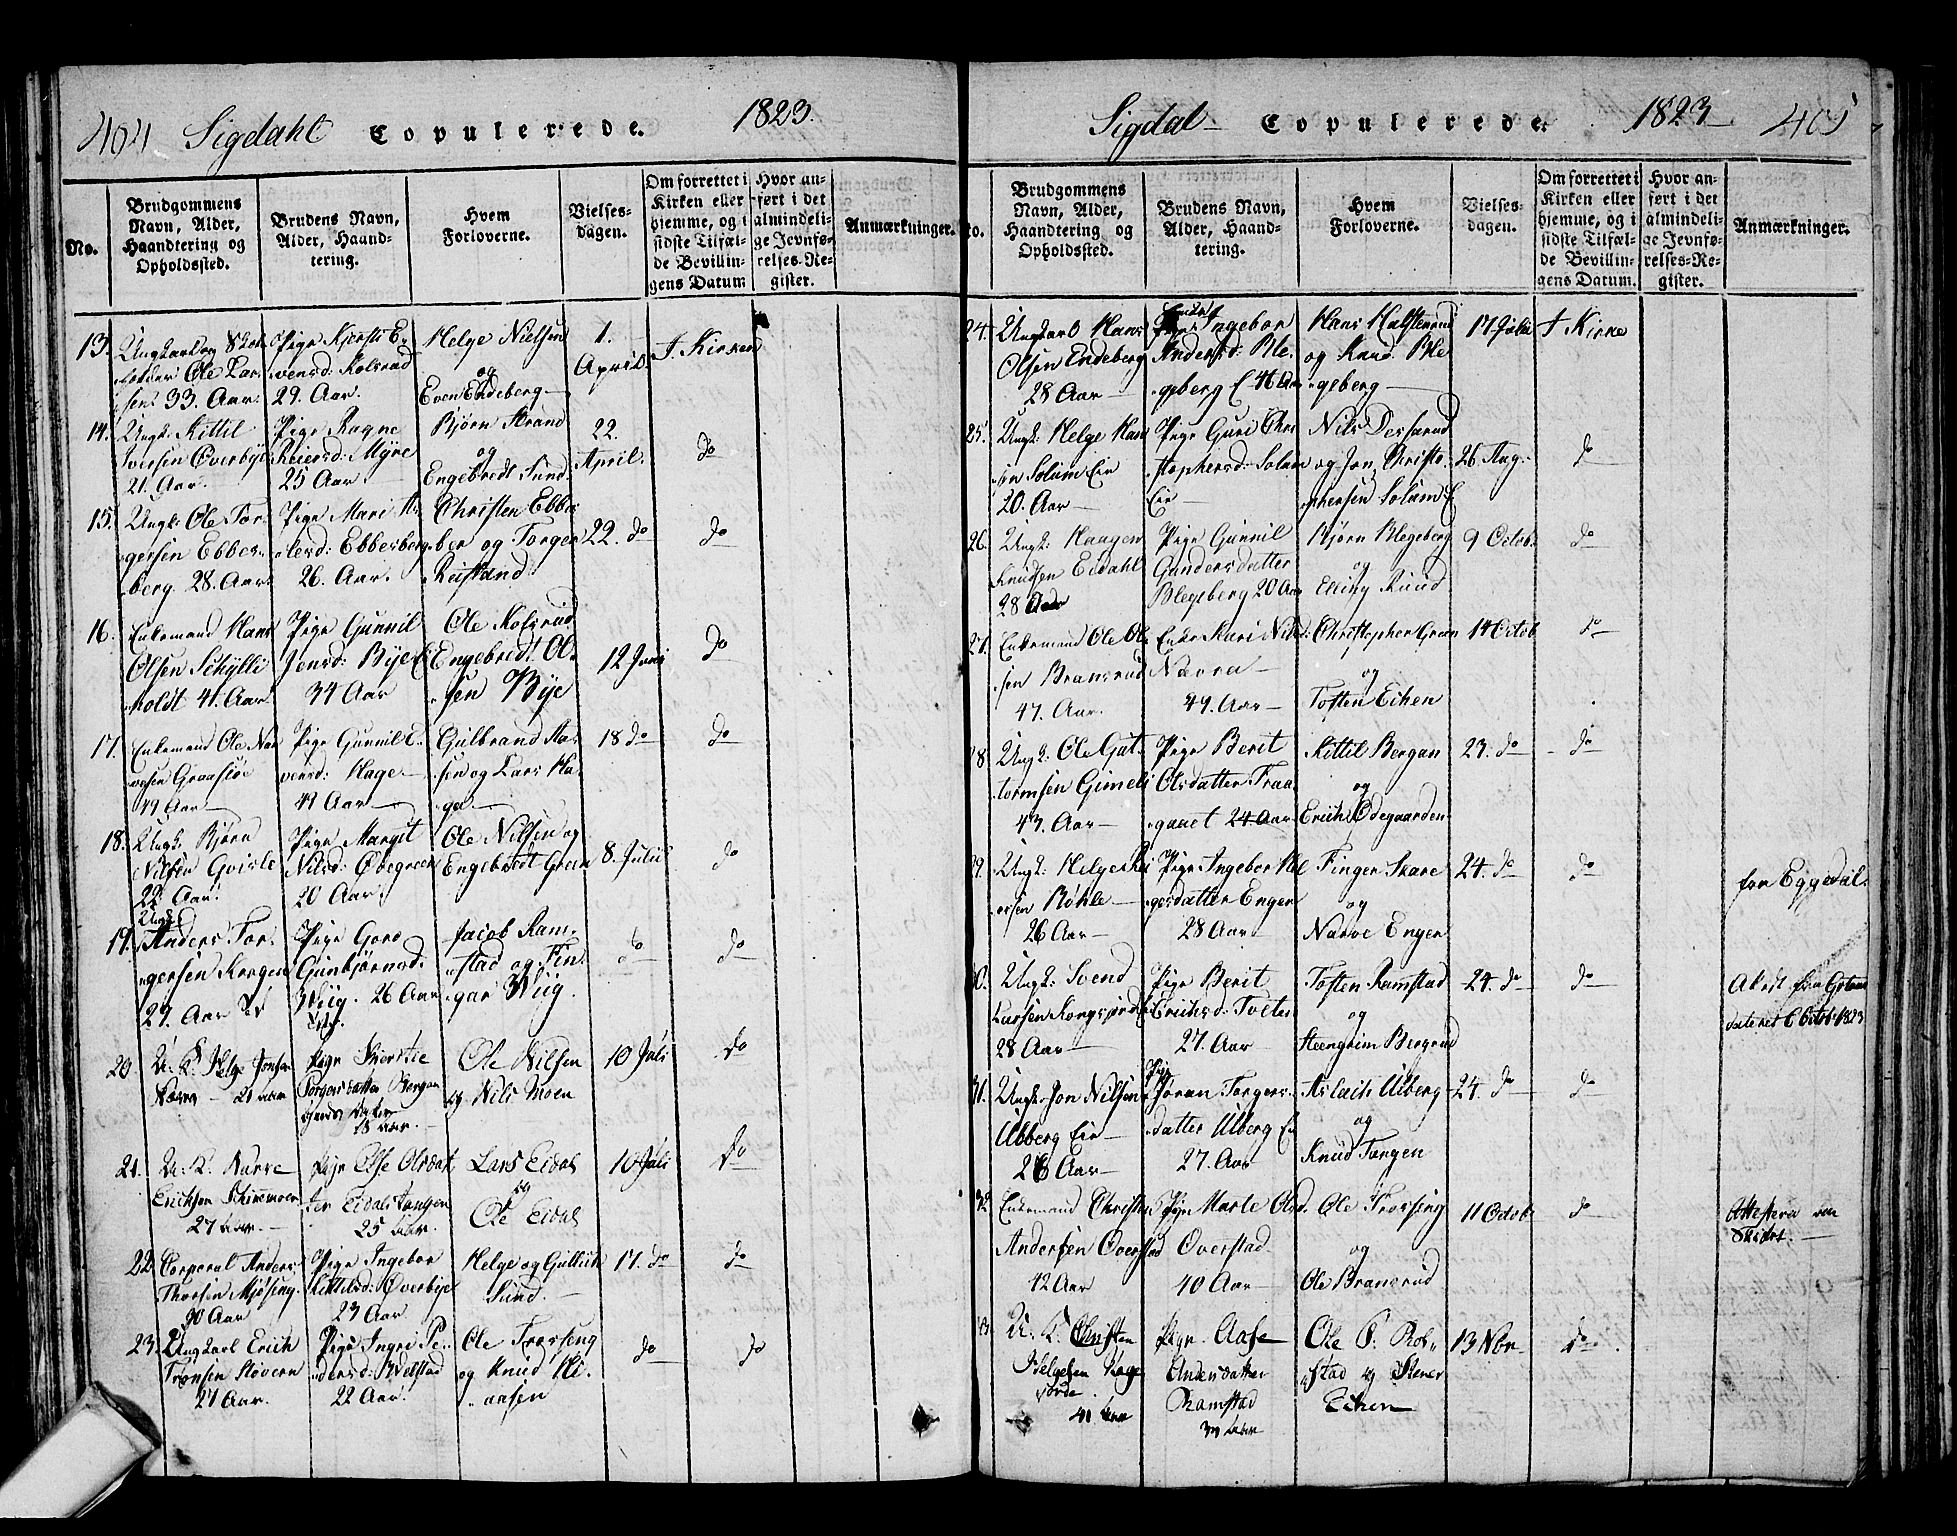 404 Sigdahl Copulerede. 1823.
No.
Brudgommens
Navn, Alder,
Haandtering og
Opholdssted.
Brudens Navn,
Alder, Haand-
tering.
Hvem
Forloverne.
Vielses-
dagen.
Om forrettet i
Kirken eller
hjemme, og i
sidste Tilfæl-
de Bevillin-
gens Datum
Hvor an-
ført i det
almindeli-
ge Jevnfø-
relses-Re-
gister.
Anmærkninger.
13.
Ungkarl og Skol-
holder Ole Lar-
sen 33. Aar.
Pige Kjersti E-
vensd: Kolsrud
29. Aar.
Helge Nielsen
og
Even Endeberg
1.
April.
I Kirken
14.
Ungk: Kittil
Iversen Overbye
21. Aar.
Pige Ragne
Reiersd: Myre
25 Aar
Bjørn Strand
og
Engebredt Sund.
22.
April.
do
15.
Ungk: Ole Tor-
gersen Ebbes-
berg 28. Aar.
Pige Mari A-
olesd: Ebbesberg
26. Aar.
Christen Ebbes-
ber og Torger
Reistand:
22. do
do
16.
Enkemand Hans
Olsen Schylli-
holdt 41. Aar
Pige Gunnil
Jensd: Bye E
34 Aar
Ole Kolsrud
Engebredt Ol-
sen Bye
12 Juni
do
17.
Enkemand Ole Nar-
vesen Graasiøe
49 Aar
Pige Gunnil E-
vensd: Hage
49 Aar
Gulbrand Aa-
sen og Lars Ha-
ga
18 do
do
18.
Ungk: Bjørn
Nilsen Gvisle
22. Aar.
Pige Margit
Nilsd: Øbegreen
20 Aar.
Ole Nilsen og
Engebredt Green
8. Julii
do
19.
Ungk:
Anders Tor-
gersen Korgen
27. Aar
Pige Goro
Gunbjørnsd:
Wiig. 26 Aar
Jacob Ram-
stad og Fin-
gar Wiig.
do
do
20
U. K. Helge Jonsen
Nævra - 21 aar
Pige Kierstie
Torgersdatter Bergan
18 aar.
Ole Nilsen
og Nils Moen
10 Juli
do
21.
U: K. Narve
Ericksen Skiremoen
27 aar.
Pige Else Olsdat
ter Eidals tangen
25 aar.
Lars Eidal
og
Ole Eidal
10 Juli
do
22
Corporal Anders
Thorsen Mjøsing.
30 Aar
Pige Ingebor
Kittilsd: Overbye
23 Aar.
Helge og Gullick
Sund.
17. do
do
23.
Ungkarl Erich
Tronsen Støvern
27 Aar.
Pige Ingri Pe-
dersd: Wælstad
22 Aar.
Ole Frøsseng
og Knud Hi-
aasen
do
do
Sigdal Copulerede. 1823 405
No.
Brudgommens
Navn, Alder,
Haandtering og
Opholdssted.
Brudens Navn,
Alder, Haand-
tering.
Hvem
Forloverne.
Vielses-
dagen.
Om forrettet i
Kirken eller
hjemme, og i
sidste Tilfæl-
de Bevillin-
gens Datum.
Hvor an-
ført i det
almindeli-
ge Jevnfø-
relses-Re-
gister.
Anmærkninger.
24.
Ungkarl Hans
Olsen Endeberg
28 Aar
Ingebor
Andersd: Ble-
geberg E 46 Aar
Hans Halstenrud
og Knud Ble
geberg
17 Julii
I Kirke
25.
Ungk: Helge Han
sen Solum Eie
20. Aar
Pige Guri Chri
stophersd: Solum
Eie
Nils Desserud
og Jon Christo-
phersen Solum E
26 Aug.
do
26.
Ungk: Haagen
Knudsen Eidahl
28 Aar
Pige Gunnil
Gundersdatter
Blegeberg 20 Aar
Bjørn Blegeberg
og
Elling Ruud
9 Octob.
do
27.
Enkemand Ole Ol-
sen Bransrud
47. Aar.
Enke Kari Nilsd:
Nævra
49. Aar
Christopher Green
og
Tosten Eichen
14 Octob
do
28
Ungk: Ole Gut-
tormsen Gimeli
43. Aar
Pige Berit
Olsdatter Fraa
gaaet 24 Aar
Kittil Bergan
og
Erich Ødegaarden
23. do
do
29.
Ungk: Helge Rei
ersen Bøhle
26 Aar
Pige Ingebor Hel
gesdatter Enger
28 Aar
Finger Skare
og
Narve Enger
24. do
do
fra Eggedal.
30.
Ungk: Svend
Larsen Kongsjord E
28 Aar
Pige Berit
Erichsd: Tveten
27. Aar
Tosten Ramstad
og
Steengrim Bergrud
24. do
do
dateret 6 Octob: 1823
31.
Ungk: Jon Nilsen
Ulberg Eie
26 Aar
Pige
Jøran Torgers-
datter Ulberg Ei
27. Aar
Aslach Ulberg
og
Knud Tangen
24. do
do
32
Enkemand Christen
Andersen Overstad
42 Aar
Pige Marte Olsd.
Overstad
40 Aar
Ole Frøsseng
og
Ole Bransrud
11 Octob
do
Attesteren om
Skifte.
33
U: K. Christen
Helgesen Hage
41 aar
Pige Aase
Andersdatter
Ramstad
Ole P. Rol-
stad og Stener
Eichen
13 Nbr
do